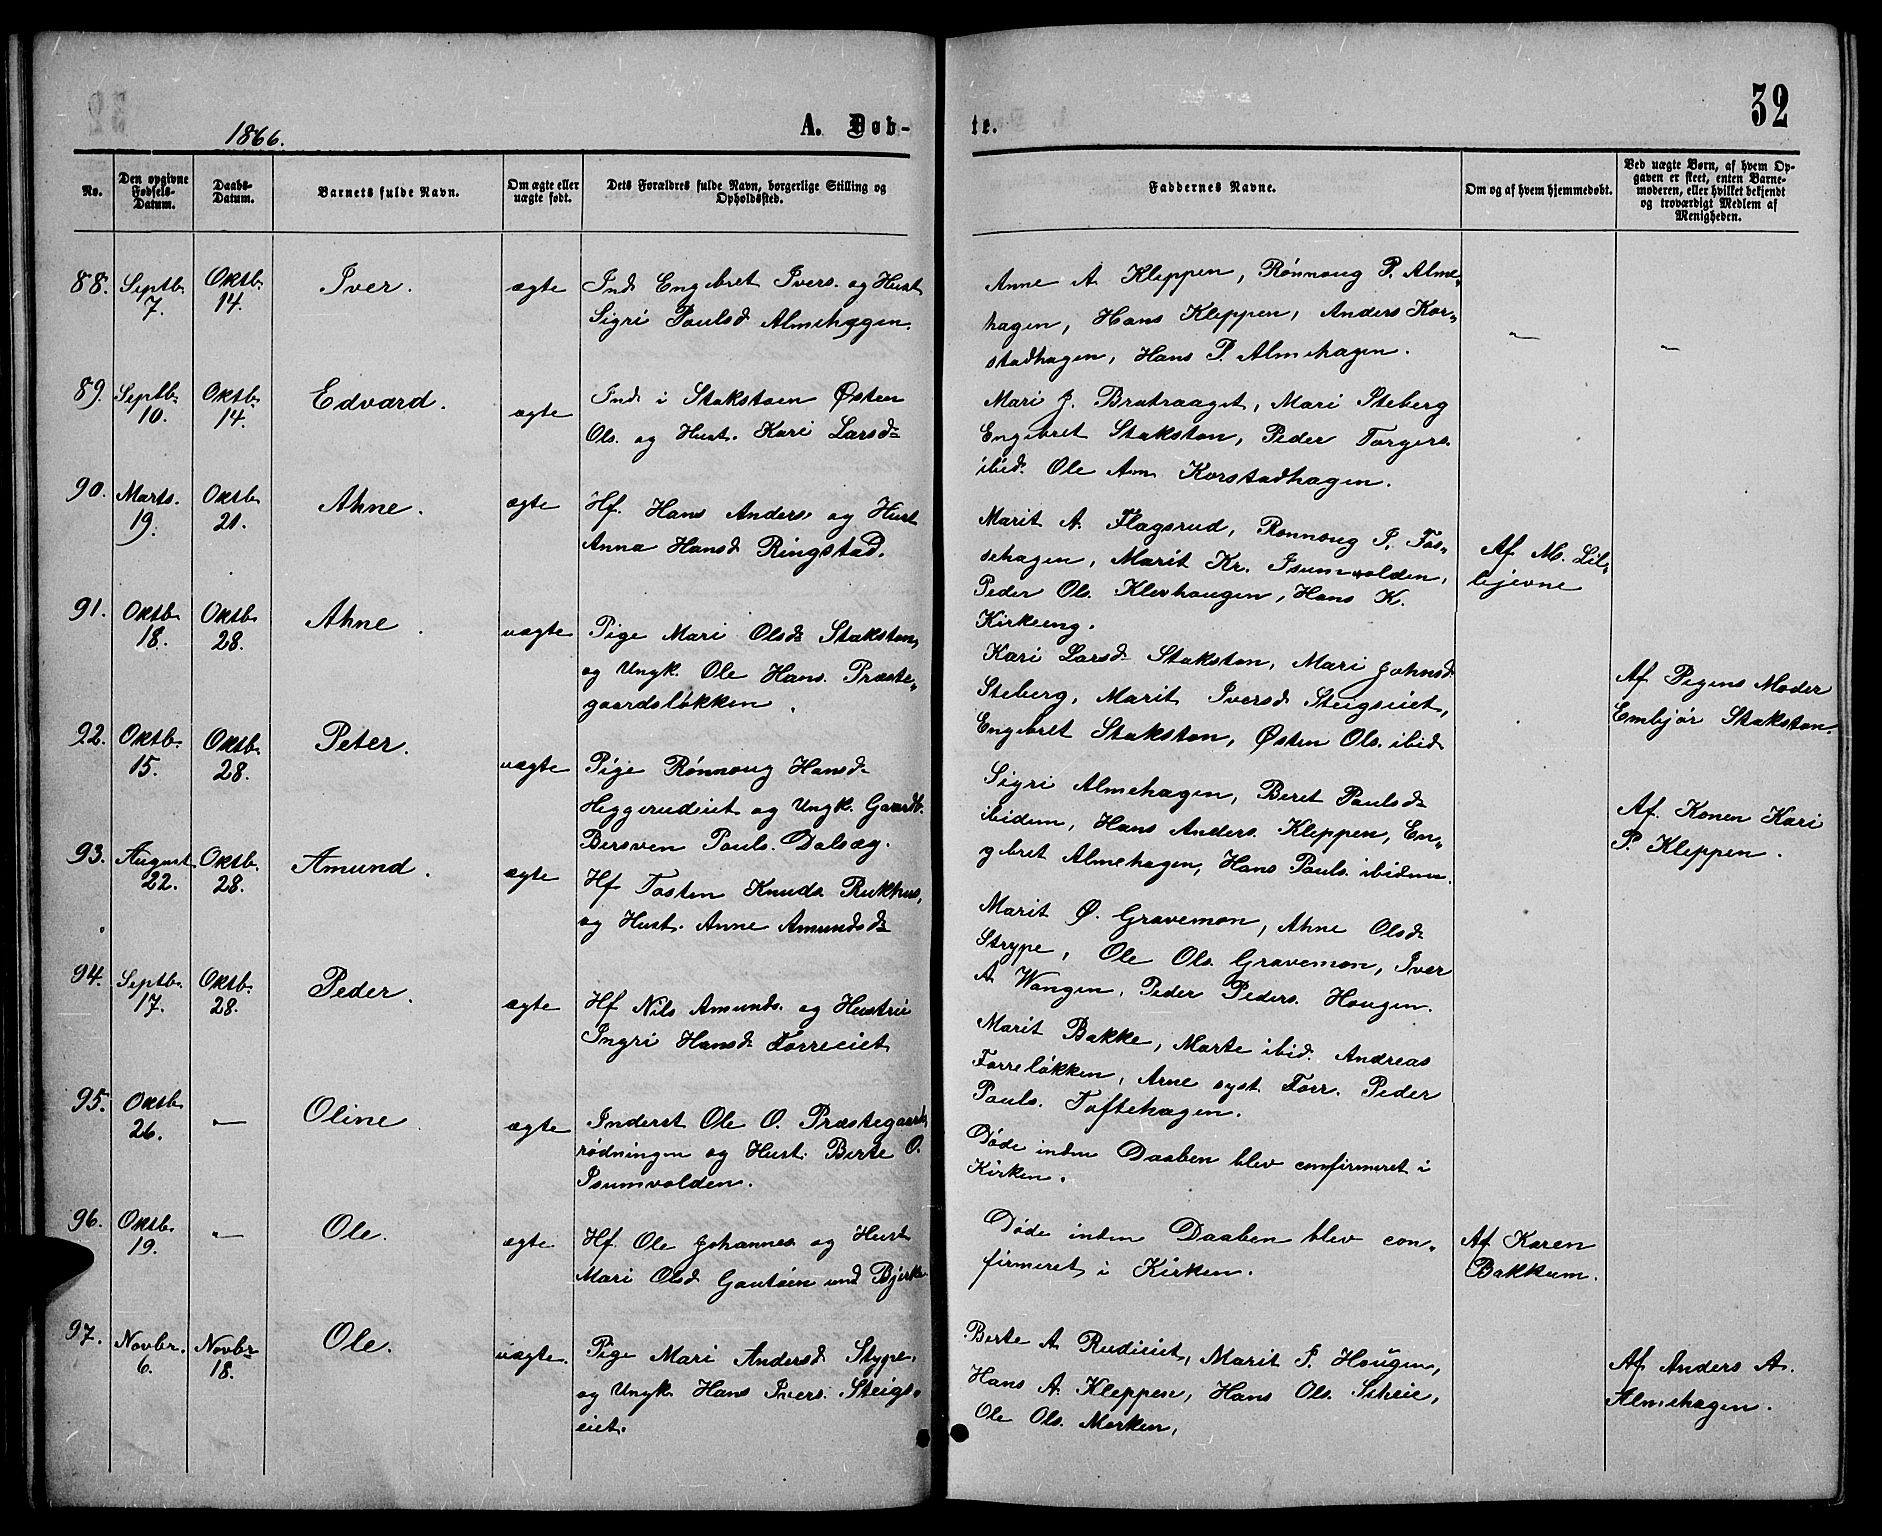 1866.
A. Døb-
No.
Den opgivne Fødsels-Datum.
Daabs-Datum.
Barnets fulde Navn.
Om ægte eller uægte født.
Dets Forældres fulde Navn, borgerlige Stilling og Opholdssted.
88. Septb. 7. Oktb. 14. Iver. ægte Ind. Engebret Ivers. og Hust
Sigri Paulsd Almehagen.
89. Septb. 10. Oktb. 14. Edvard. ægte Ind. i Stakston Østen
Ols. og Hust. Kari Larsd.
90. Marts. 19. Oktb. 21. Ahne. ægte Hf. Hans Anders. og Hust
Anna Hansd Ringstad.
91. Oktb. 18. Oktb. 28. Ahne. uægte Pige Mari Olsd. Stakston,
og Ungk. Ole Hans. Præste-
gaardsløkken.
92. Oktb. 15. Oktb. 28. Peter. uægte Pige Rønnoug Hansd.
Heggerudeiet og Ungk. Gaardb.
Bersven Pauls. Dalsæg.
93. August 22. Oktb. 28. Amund. ægte Hf Tosten Knuds. Rukhus,
og Hust. Anne Amundsd.
94. Septb. 17. Oktb. 28. Peder. ægte Hf Nils Amunds. og Hustrue
Ingri Hansd. Forreeiet
95. Oktb 26. — Oline ægte Inderst Ole O. Præstegaards
rødningen og Hust. Berte O.
Isumvolden.
96. Oktb. 19. — Ole. ægte. Hf. Ole Johannes. og Hust
Mari Olsd Gautsen und Bjerke
97. Novbr. 6. Novbr 18. Ole. uægte. Pige Mari Andersd Stype,
og Ungk. Hans Ivers. Steigs-
eiet.
te.
32
Faddernes Navne.
Om og af hvem hjemmedøbt.
Ved uægte Børn, af hvem Op-
gaven er skeet, enten Barne-
moderen, eller hvilket bekjendt
og troværdigt Medlem af
Menigheden.
Anne A. Kleppen, Rønnoug P. Alme-
hagen, Hans Kleppen, Anders Kor-
stadhagen, Hans P. Almehagen.
—
—
Mari J. Bratraaget, Mari Steberg
Engebret Stakston, Peder Torgers.
ibid. Ole Am. Korstadhagen.
Marit A. Flagsrud, Rønnoug P. Fos-
sehagen, Marit Kr. Isumvolden,
Peder Ols. Klevhaugen, Hans K.
Kirkeeng.
Af M. Lil-
lejevne
Kari Larsd. Stakston, Mari Johnsd
Steberg, Marit Iversd Steigseiet,
Engebret Stakston, Østen Ols. ibid
Af Pigens Moder
Embjør Stakston.
Sigri Almehagen, Beret Paulsd.
ibidem, Hans Anders. Kleppen, En-
gebret Almehagen, Hans Pauls. ibidem.
Af. Konen Kari
P. Kleppen.
Marit Ø. Gravemon, Ahne Olsd.
Strype, Ole Ols. Gravemon, Iver
A. Wangen, Peder Peders. Hougen.
Marit Bakke, Marte ibid. Andreas
Forreløkken, Arne syst. Forr. Peder
Pauls. Toftehagen.
Døde inden Daaben blev confirmeret i
Kirken.
Døde inden Daaben blev con-
firmeret i Kirken.
Af Karen
Bakkum.
Berte A. Rudieiet, Marit P. Hougen,
Hans A. Kleppen, Hans Ols. Scheie,
Ole Ols. Morken,
Af Anders A.
Almehagen.